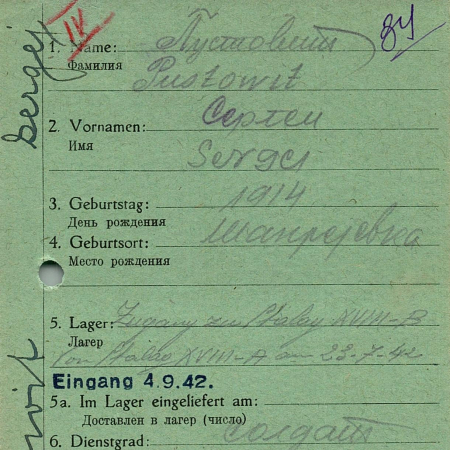 IV
84
1. Name: Пустовит
Фамилия
Pustowit
2. Vornamen: Сергей
Имя
Sergej
3. Geburtstag: 1914
День рождения
4. Geburtsort:
Место рождения
5. Lager: Zugang zu Stalag XVIII-B
Лагер
von Stalag XVIII-A am 23-7-42
Eingang 4.9.42.
5a. Im Lager eingeliefert am:
Доставлен в лагер (число)
6. Dienstgrad: солдат
Sergej